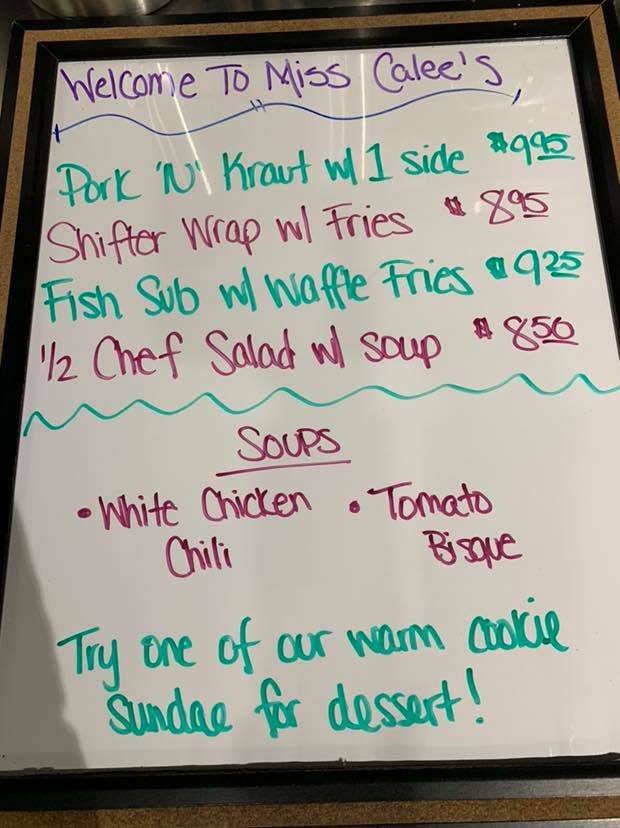 Welcome To Miss Calee's
Pork 'N' Kraut w/ 1 side $9.95
Shifter Wrap w/ Fries $8.95
Fish Sub w/ Waffle Fries $9.25
1/2 Chef Salad w/ soup $8.50
Soups
• White Chicken • Tomato
Chili Bisque
Try one of our warm cookie
sundae for dessert!